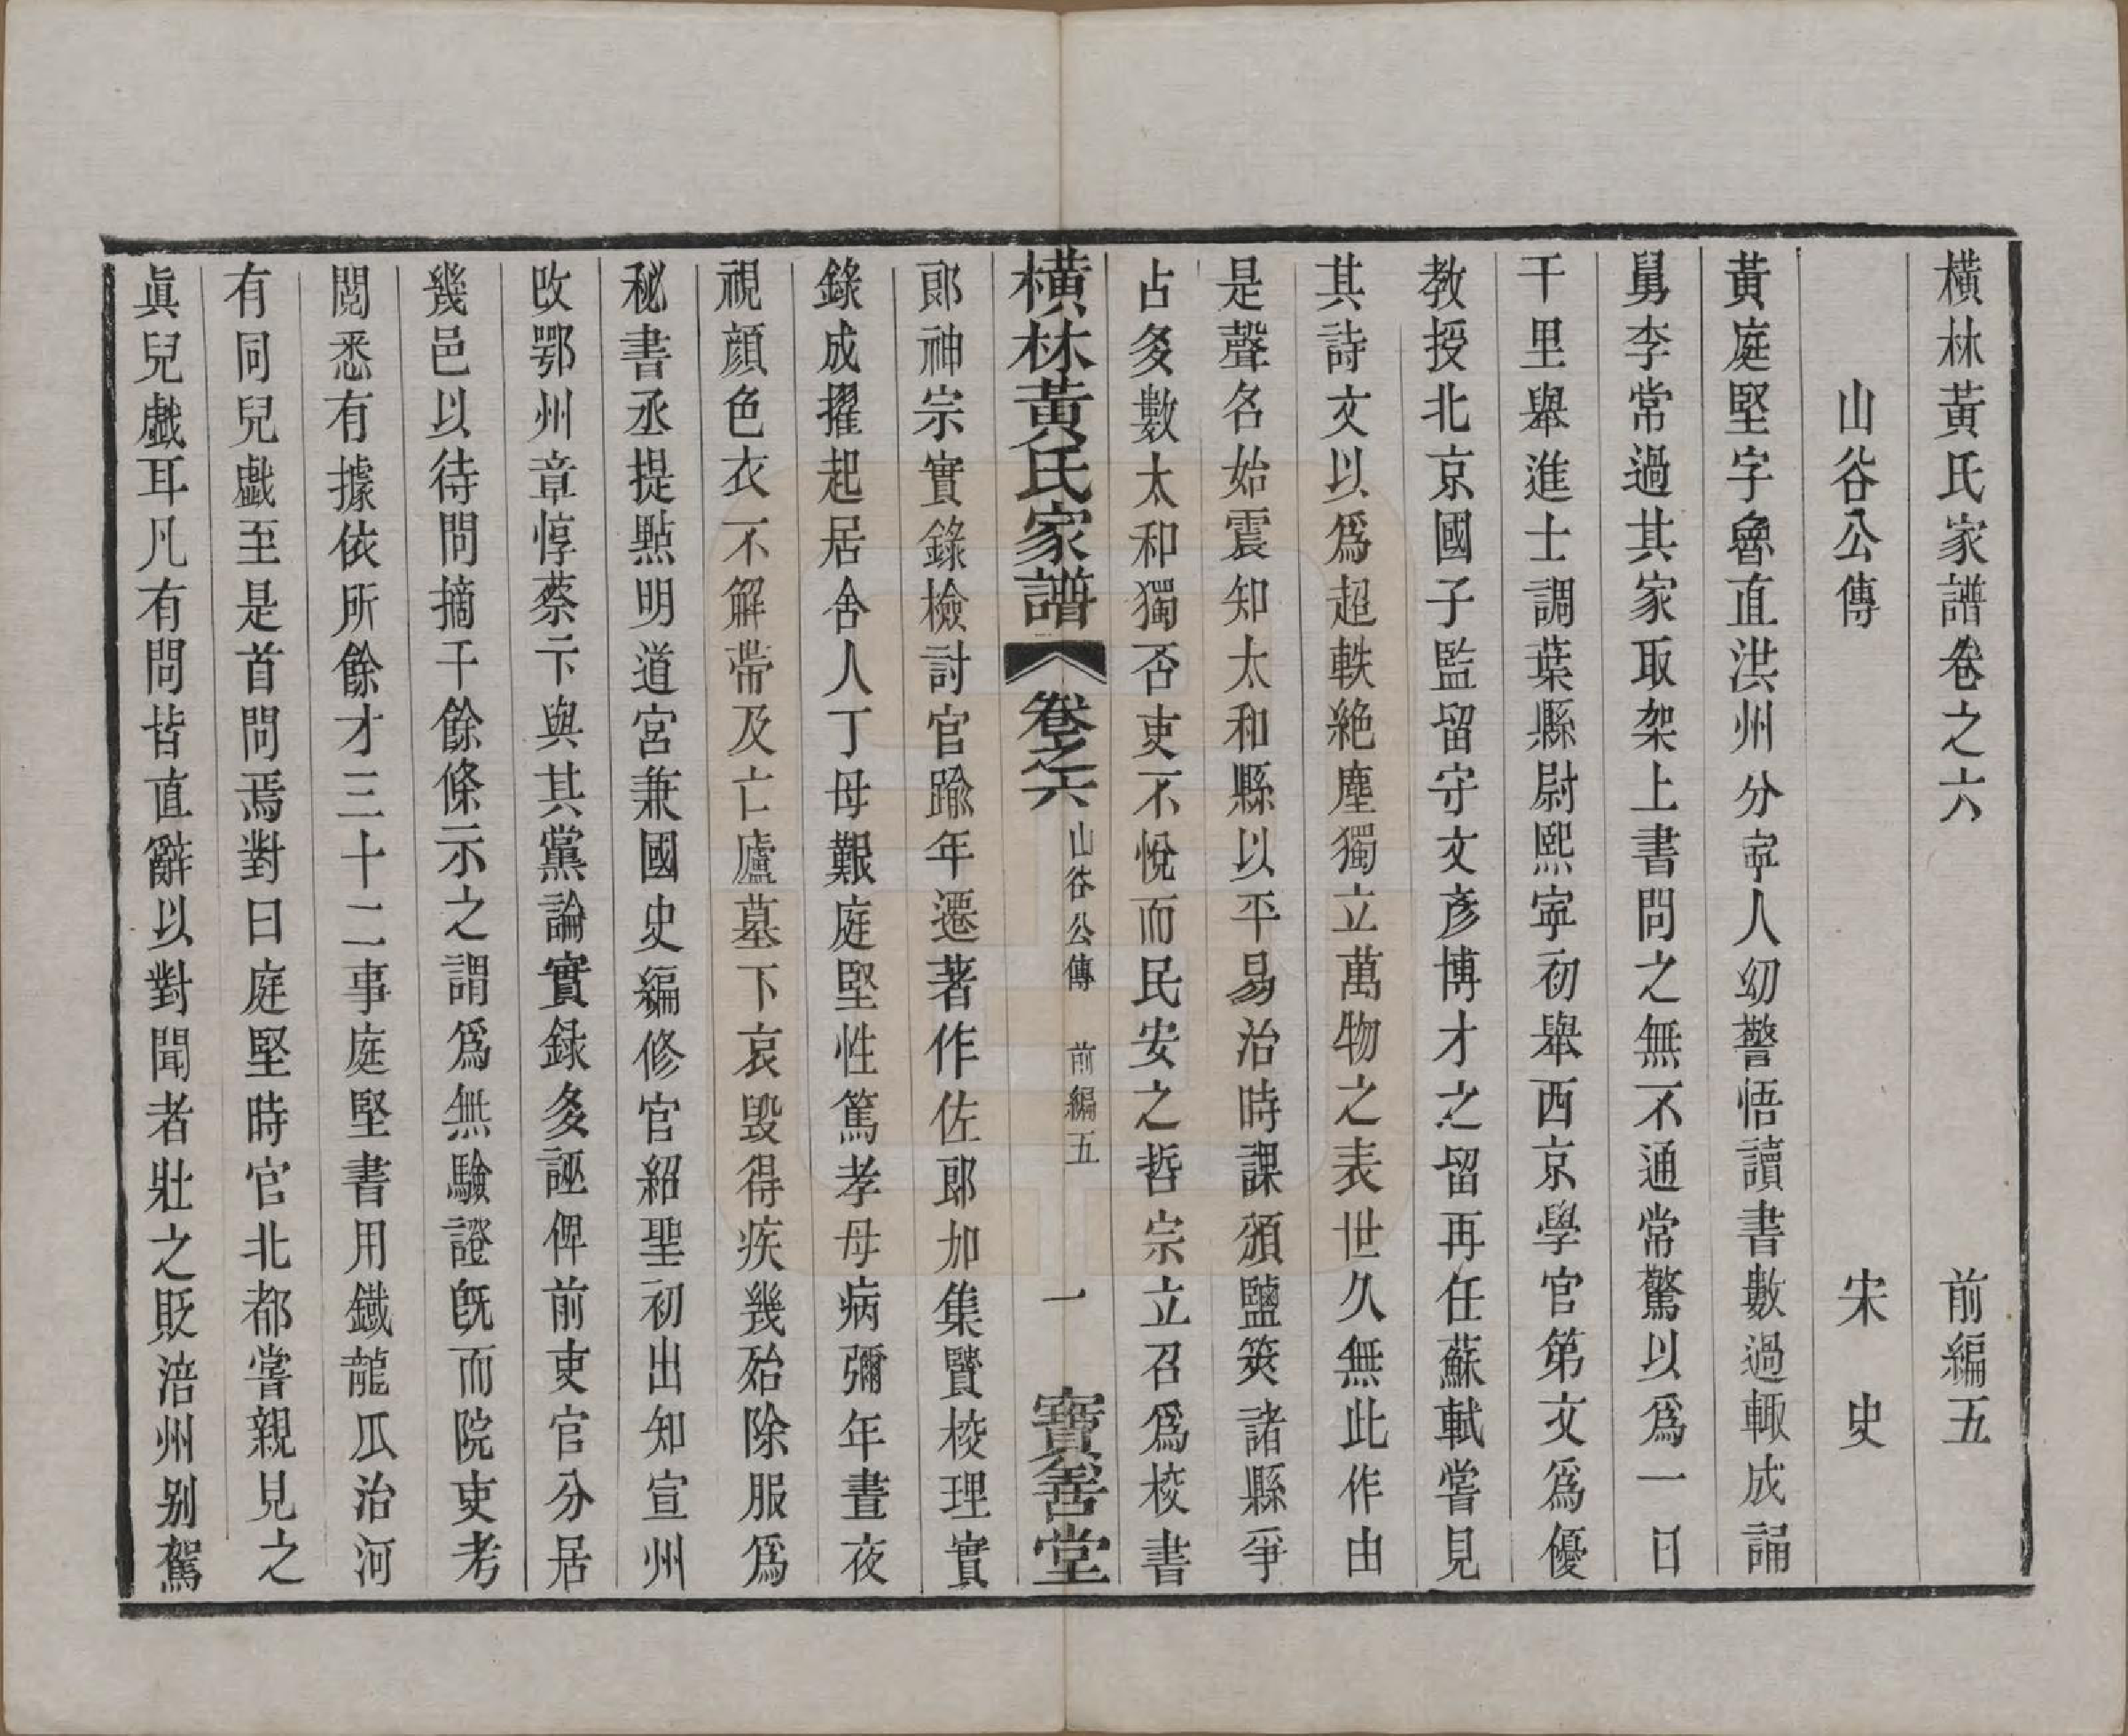 橫林黃氏家譜卷之六　前編五
山谷公傳　宋史
黃庭堅字魯直洪州分寧人幼警悟讀書數過輙成誦
舅李常過其家取架上書問之無不通常驚以爲一日
千里舉進士調葉縣尉熙寧初舉西京學官第文爲優
教授北京國子監留守文彥博才之留再任蘇軾嘗見
其詩文以爲超軼絶塵獨立萬物之表世久無此作由
是聲名始震知太和縣以平易治時課頒鹽筴諸縣爭
占多數太和獨否吏不悅而民安之哲宗立召爲校書
橫林黃氏家譜　卷之六　山谷公傳　前編五　一　寶善堂
郞神宗實錄檢討官踰年遷著作佐郞加集賢校理實
錄成擢起居舍人丁母艱庭堅性篤孝母病彌年晝夜
視顔色衣不解帶及亡廬墓下哀毀得疾幾殆除服爲
秘書丞提㸃明道宮兼國史編修官紹聖初出知宣州
改鄂州章惇蔡卞與其黨論實録多誣俾前吏官分居
幾邑以待問摘千餘條示之謂爲無驗證旣而院吏考
閲悉有據依所餘才三十二事庭堅書用鐵龍爪治河
有同兒戲至是首問焉對曰庭堅時官北都嘗親見之
眞兒戲耳凡有問皆直辭以對聞者壯之貶涪州別駕